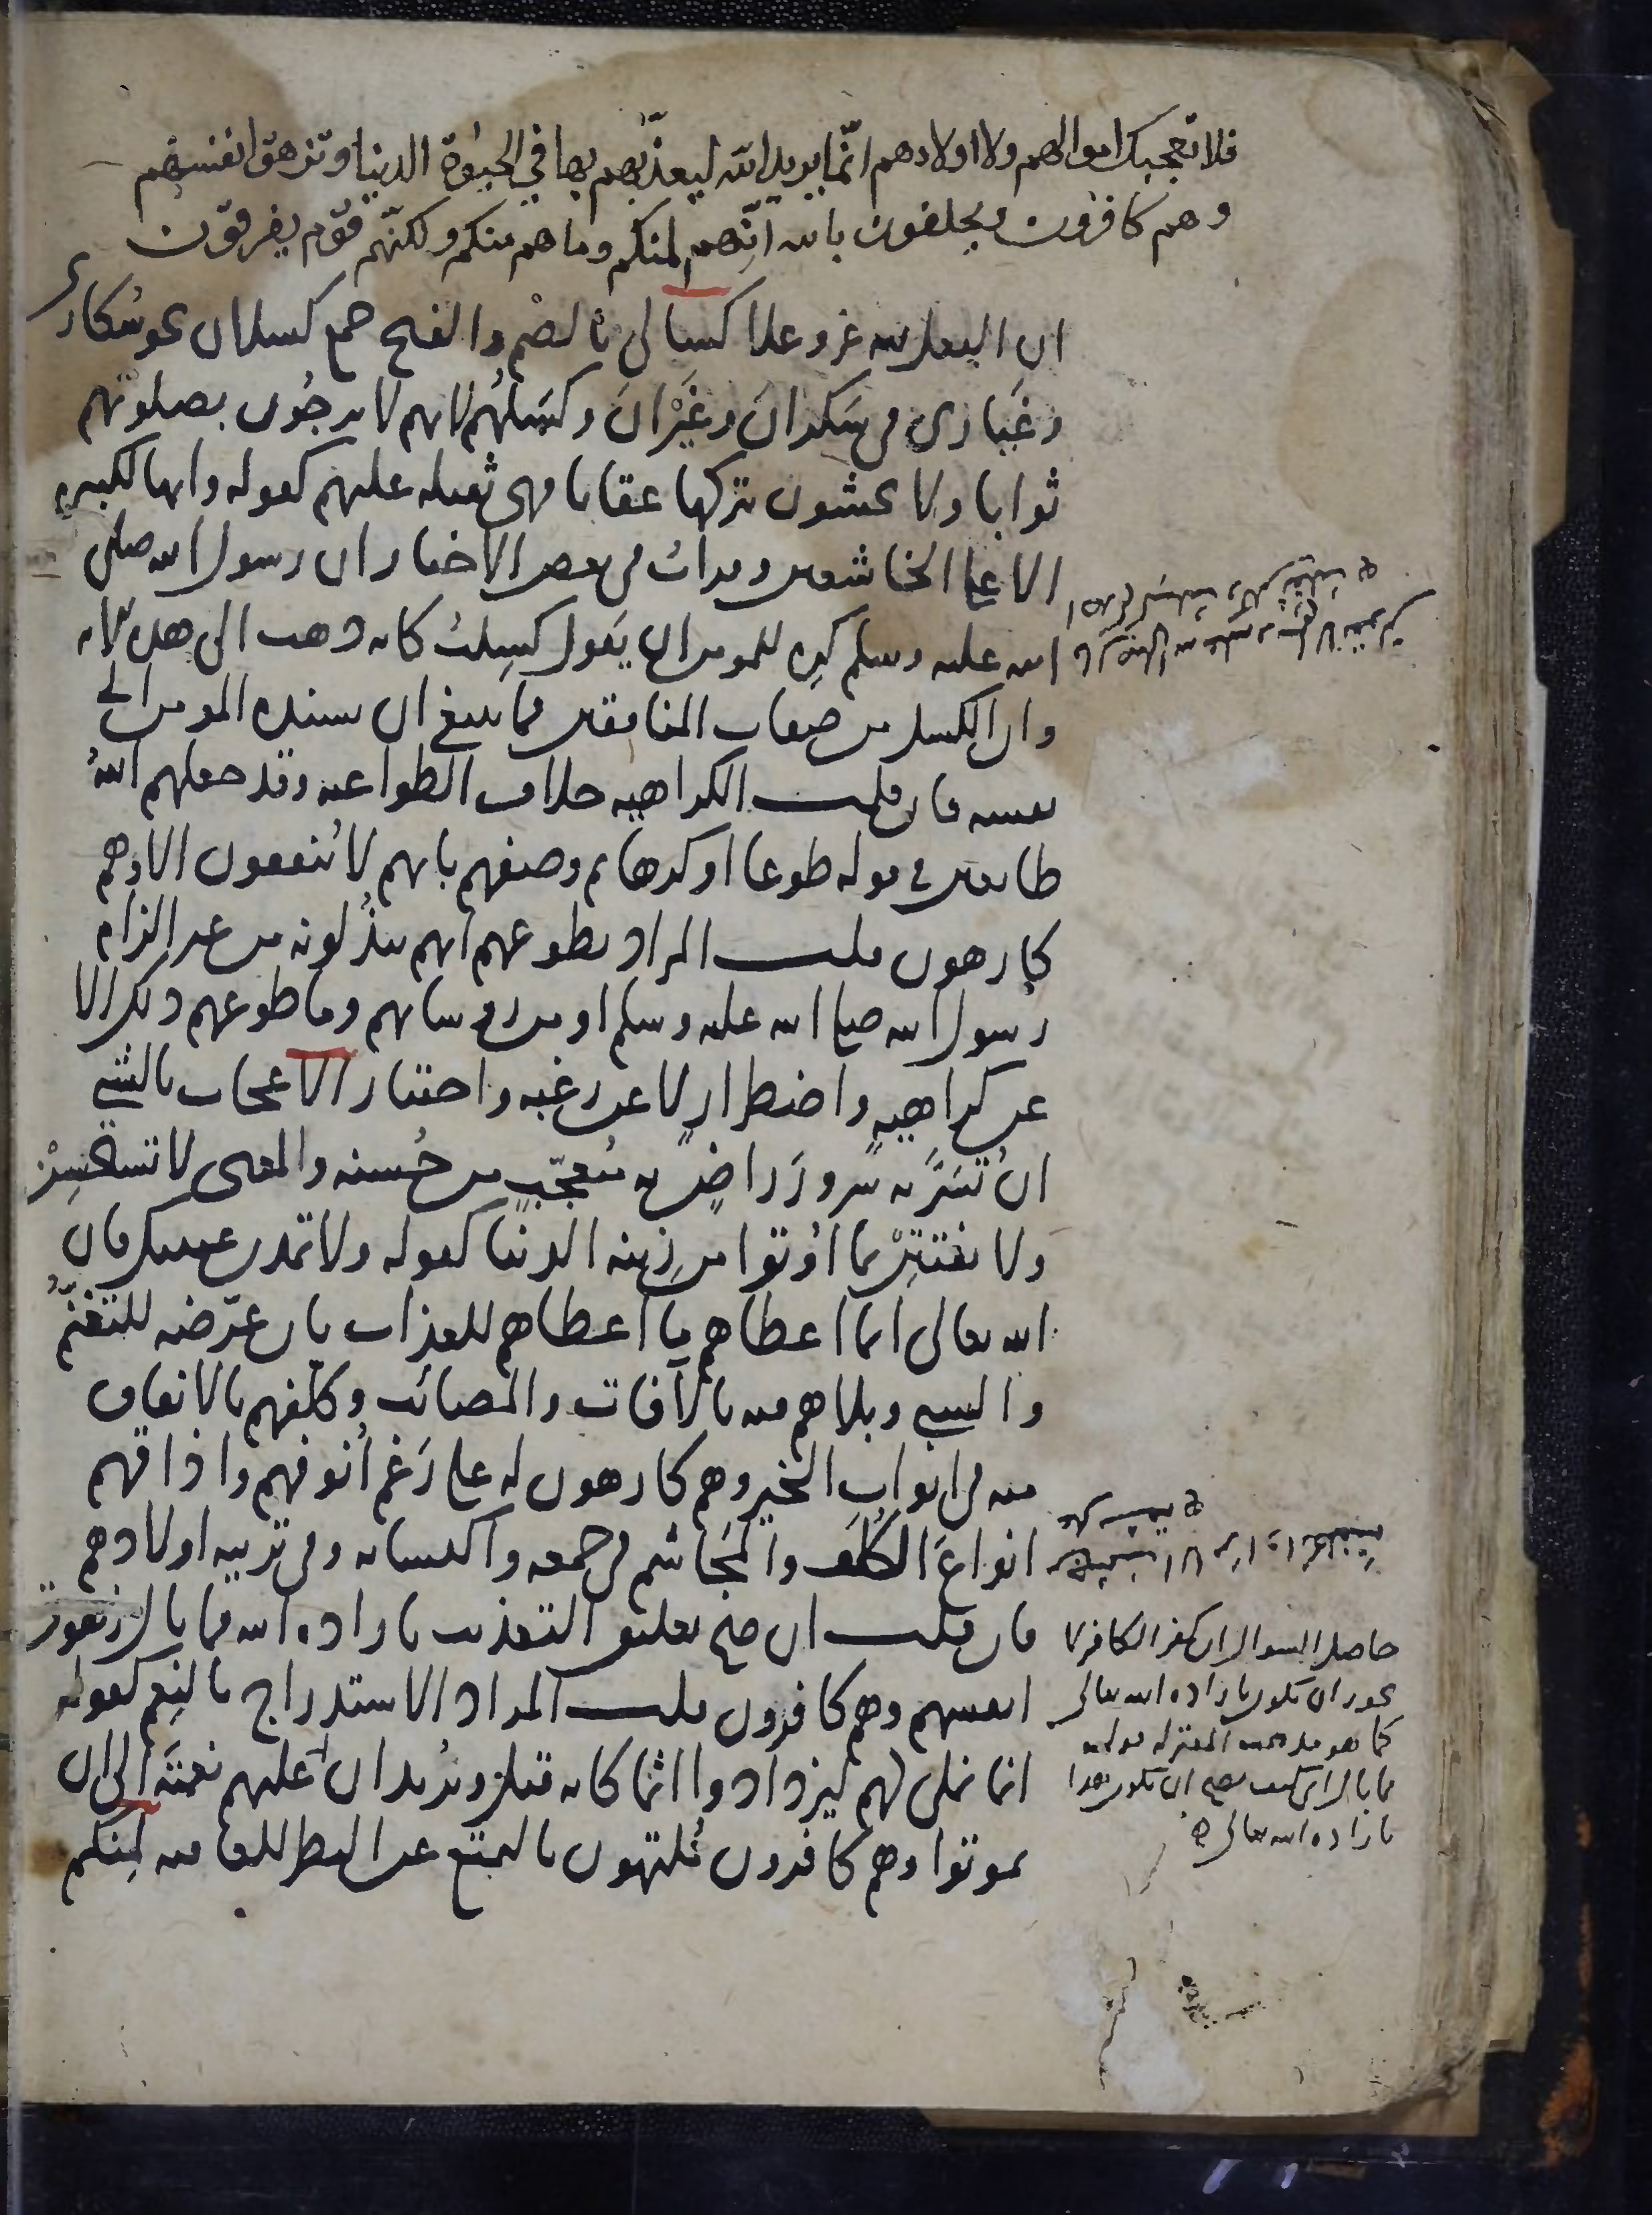 فلا تعجبك اموالهم ولا اولادهم انّما يريد الله ليعذّبهم بها في الحيوة الدنيا وتزهق انفسهم
وهم كافرون ويحلفون بالله انّهم لمنكم وما هم منكم ولكنّهم قوم يفرقون
ان الفعل لله عز وعلا كسالى بالضم والفتح جمع كسلان نحو سُكارى
وغَيارى في سَكرانَ وغَيْرانَ وكسَلُهُم لانهم لا يرجُون بصلوتهم
ثوابا ولا يخشون بتركها عقابا فهي ثقيلة عليهم كقوله وانها لكبيرة
الا على الخاشعين وقرات في بعض الاخبار ان رسول الله صلى
الله عليه وسلم كَرِه للمومن ان يَقول كسِلتُ كانه ذهب الى هذه الاية
وان الكسل من صفات المنافقين فما ينبغي ان يسنده المومن الى
نفسه فان قلت الكراهية خلاف الطواعية وقد جعلهم اللهُ
طائعين في قوله طوعا او كرها ثم وصفهم بانهم لا يُنفقون الا وهم
كارهون قلت المراد بطوعهم انهم يبذُلونه من غير الزام
رسول الله صلى الله عليه وسلم او من رؤسائهم وما طوعهم ذلك الا
عن كراهيةٍ واضطرارٍ لا عن رغبة واختيار الاعجاب بالشي
ان تُسَرَّ به سُرورَ راضٍ به مُتعجّبٍ من حُسنه والمعنى لا تستحسِنْ
ولا تفتتِنْ بما اُوتوا من زينة الدنيا كقوله ولا تمدن عينيك فان
الله تعالى انما اعطاهم ما اعطاهم للعذاب بان عرّضه للتغنّم
والسبي وبلاهم فيه بالآفات والمصائب وكلّفهم بالانفاق
منه في ابواب الخير وهم كارهون له على رَغم اُنوفهم واذاقهم
انواعَ الكُلَف والمَجَاشم في جمعه واكتسابه وفي تربية اولادهم
فان قلت ان صح تعليق التعذيب بارادة الله فما بال زهوق
انفسهم وهم كافرون قلت المراد الاستدراج بالنِعم كقوله
انما نملي لهم ليزدادوا اثما كانه قيل ويُريد ان عليهم نعمتَه الى ان
يموتوا وهم كافرون مُلتهون بالتمتع عن النظر للعاقبة لمِنكم
حاصل السوال ان كفر الكافر لا
يجوز ان يكون بارادة الله تعالى
كما هو مذهب المعتزلة
فما بال اي كيف يصح ان يكون هذا
بارادة الله تعالى